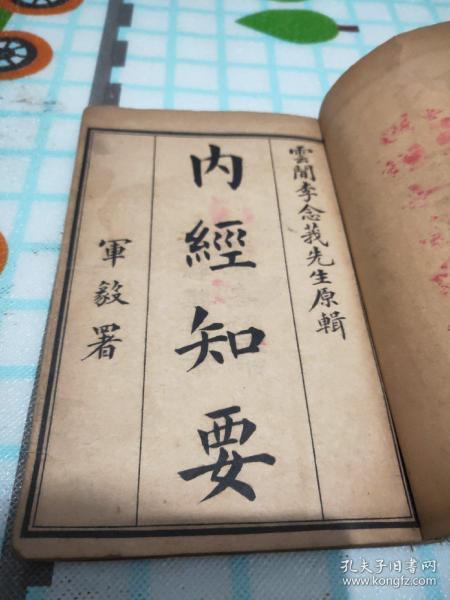 雲間李念莪先生原輯
內經知要
軍毅署
孔夫子旧书网
www.kongfz.com